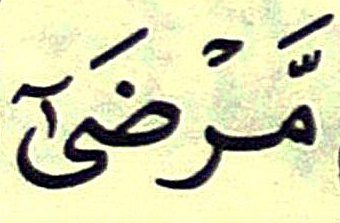 مَّرْضَىٰٓ